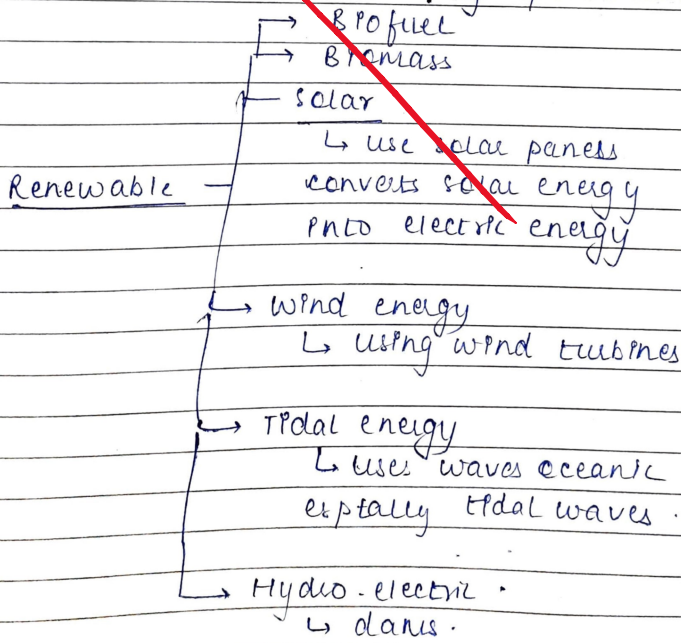 Biofuel
Biomass
solar
↳ use solar paness
Renewable
converts solar energy
into electric energy
wind energy
↳ using wind turbines
Tidal energy
↳ uses waves oceanic
tidal waves.
Hydro-electric.
↳ dams.